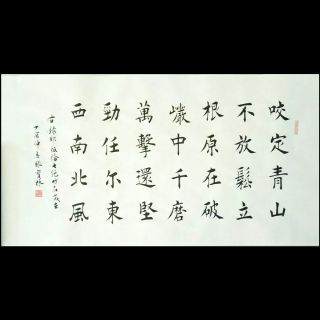 咬定青山
不放鬆立
根原在破
巖中千磨
萬擊還堅
勁任尔東
西南北風